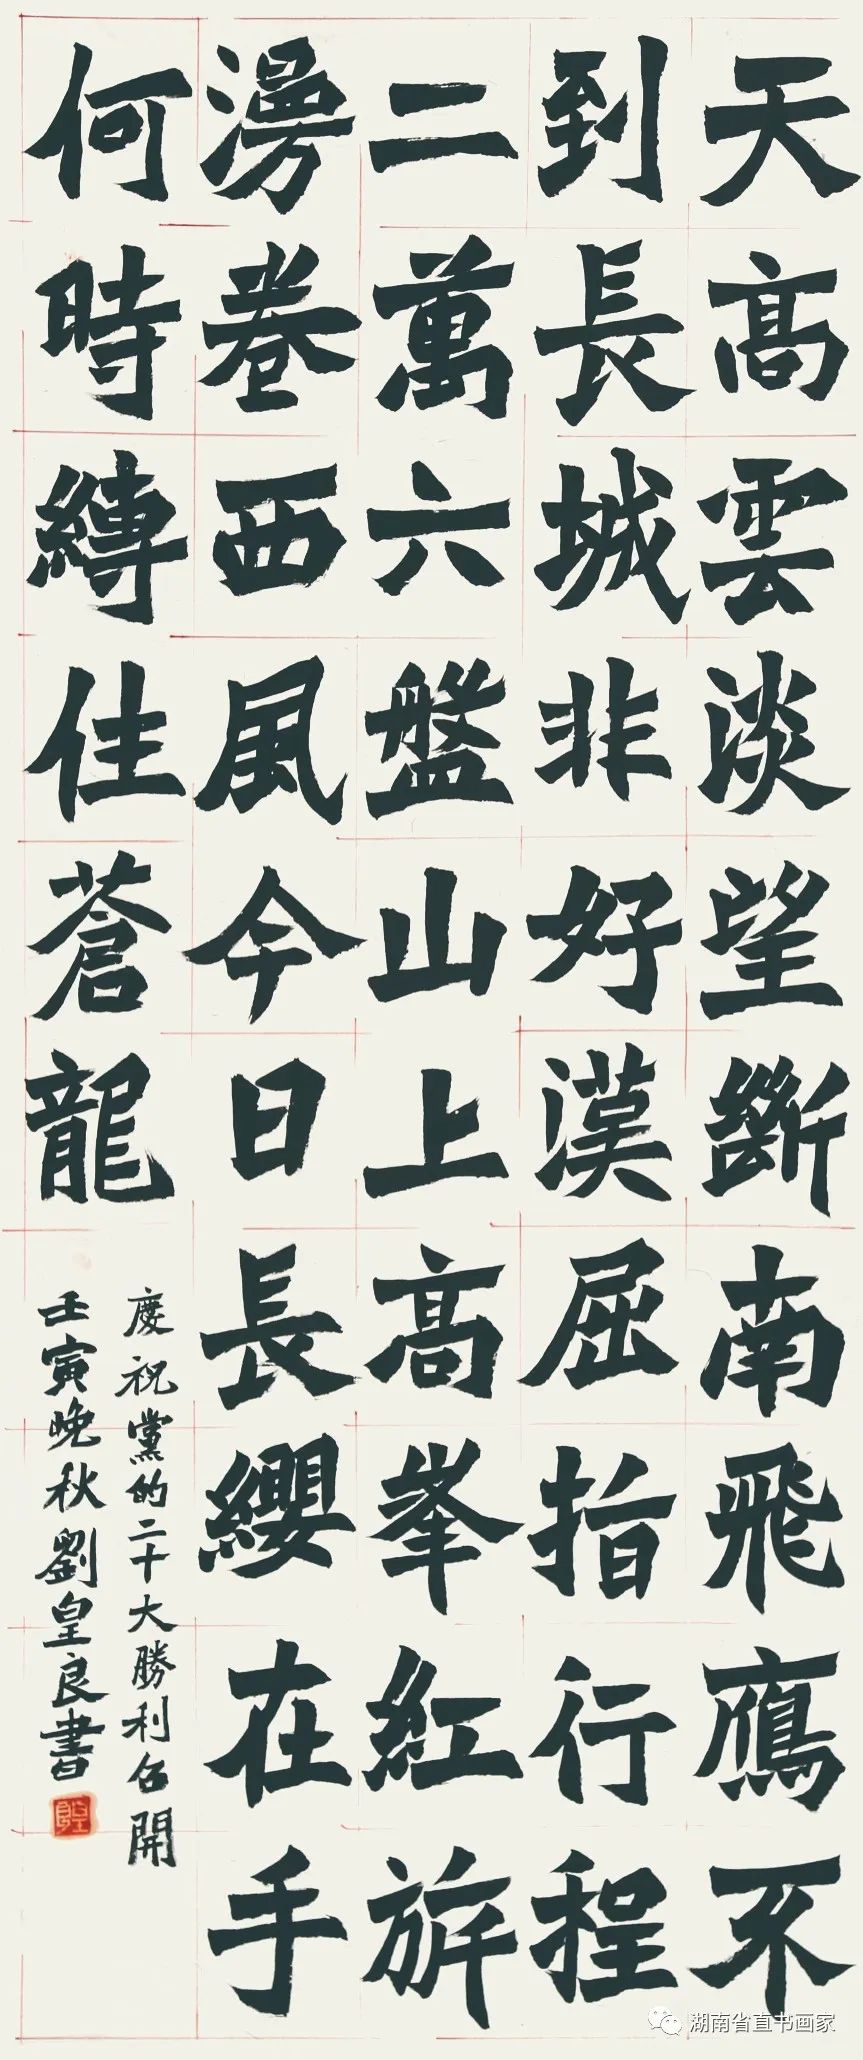 天高雲淡望斷南飛鴈不
到長城非好漢屈指行程
二萬六盤山上高峯紅旂
漫卷西風今日長纓在手
何時縛住蒼龍
慶祝黨的二十大勝利召開
壬寅晚秋劉皇良書
湖南省直书画家